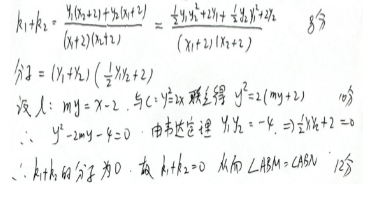 k₁+k₂ = y₁(x₂+2)+y₂(x₁+2) / (x₁+2)(x₂+2) = ½y₁y₂²+2y₁+½y₂y₁²+2y₂ / (x₁+2)(x₂+2) 8分
分子 = (y₁+y₂)(½y₁y₂+2)
设 l: my = x-2 . 与 C: y²=2x 联立得 y²=2(my+2) 10分
∴ y²-2my-4=0 . 由韦达定理 y₁y₂ = -4. ⇒ ½y₁y₂+2=0
∴ k₁+k₂的分子为0 . 故 k₁+k₂=0 从而 ∠ABM=∠ABN 12分